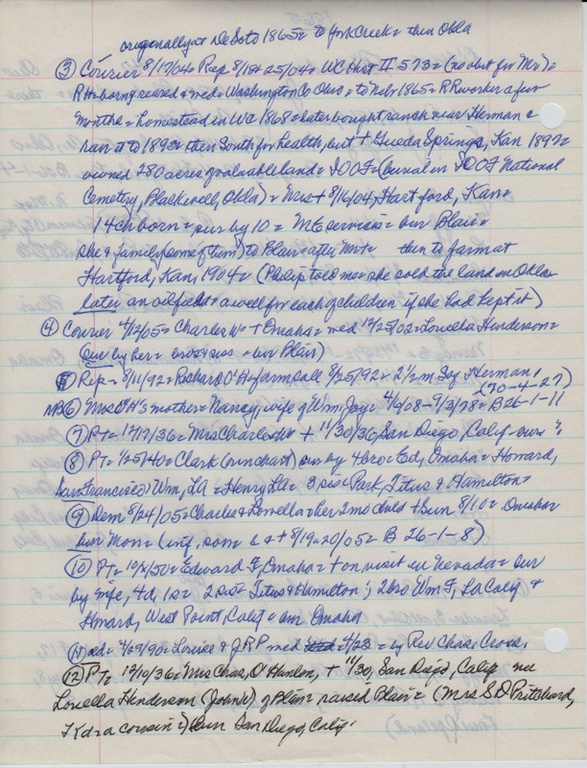 originally at DeSoto 1865 = to York Creek = then Okla
③ Courier 8/17/04 = Rep 8/18 + 25/04 = WC Hist II 573 = (no obit for Mr) =
RH = being reared + med = Washington Co Ohio = to Nebr 1865 = RR worker a few
months = homestead in WC 1868 = later bought ranch near Herman =
ran it to 1893 = then South for health, but + Gueda Springs, Kan 1897 =
owned 280 acres valuable land = IOOF = (burial in IOOF National
Cemetery, Blackwell, Okla) = Mrs + 8/16/04, Hartford, Kan =
14 ch born = sur by 10 = ME services = bur Blair =
she + family (some of them) to Blair = after Mr + = then to farm at
Hartford, Kan, 1904 = (Philip told me = she sold the land in Okla =
later an oilfield = a well for each of children if she had kept it)
④ Courier 4/12/05 = Charles W = + Omaha = med 12/25/02 = Louella Henderson =
sur by her = bur Blair)
⑤ Rep = 8/11/92 = Richard O'H = farm sale 8/25/92 = 2½ m Sey Herman)
(30-4-27)
NB ⑥ Mrs O'H's mother = Nancy, wife of Wm Joy = 4/6/08 - 9/3/78 = B 26-1-11
⑦ PT = 12/17/36 = Mrs Charlotte + 11/30/36, San Diego, Calif
⑧ PT = 1/25/40 = Clark = sur by 4 bro = Ed, Omaha = Howard,
San Francisco = Wm, LA = Henry LA = 3 sis = Park, Titus + Hamilton =
⑨ Dem 8/24/05 = Charles + Louella = her 2 mo child + Sun 8/10 = Omaha =
bur Mon = (inf. son = b + 8/19-20/05 = B 26-1-8)
⑩ PT = 10/5/50 = Edward F, Omaha = + on visit in Nevada = sur
by wife, 4d, 1s = 2 sis = Titus + Hamilton; 2 bro Wm F, La Calif +
Howard, West Point, Calif = bur Omaha
⑪ ad = 4/69/90 = Louise + J R P med 4/23 = by Rev Chas. Cross,
⑫ PT = 12/10/36 = Mrs Chas. O'Hanlon, + 11/30, San Diego, Calif = nee
Louella Henderson (John's) of Blair = raised Blair = (Mrs S D Pritchard,
a cousin) bur San Diego, Calif.